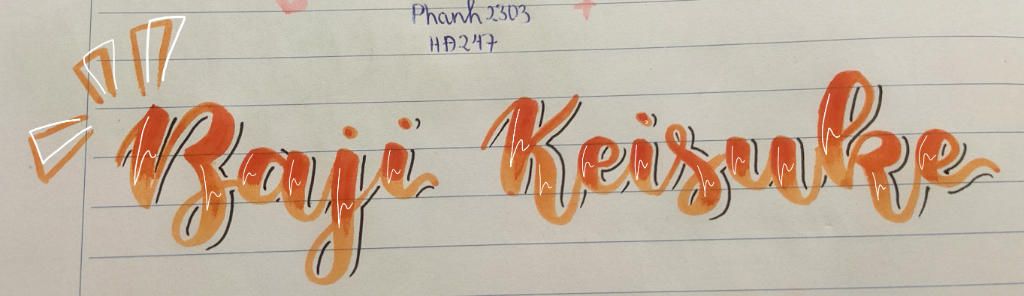 Phanh2303
HA247
Baji Keisuke